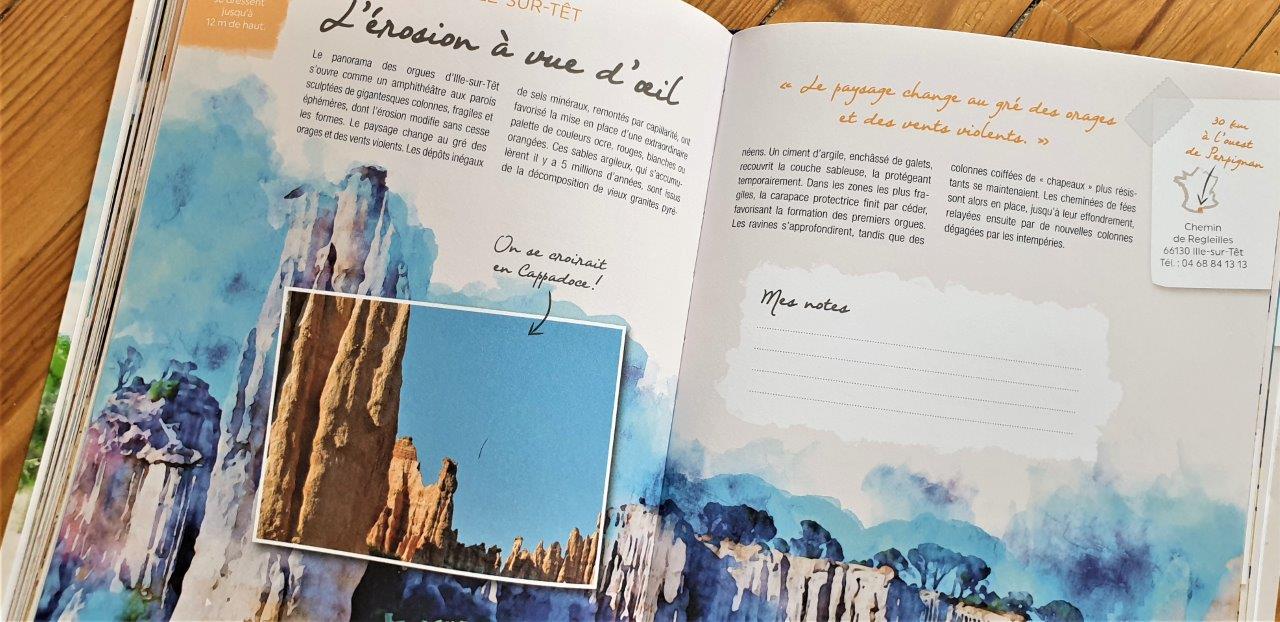 se dressent
jusqu'à
12 m de haut.
SUR-TÊT
L'érosion à vue d'œil
Le panorama des orgues d'Ille-sur-Têt
s'ouvre comme un amphithéâtre aux parois
sculptées de gigantesques colonnes, fragiles et
éphémères, dont l'érosion modifie sans cesse
les formes. Le paysage change au gré des
orages et des vents violents. Les dépôts inégaux
de sels minéraux, remontés par capilarité, ont
favorisé la mise en place d'une extraordinaire
palette de couleurs ocre, rouges, blanches ou
orangées. Ces sables argileux, qui s'accumu-
lèrent il y a 5 millions d'années, sont issus
de la décomposition de vieux granites pyré-
On se croirait
en Cappadoce !
« Le paysage change au gré des orages
et des vents violents. »
néens. Un ciment d'argile, enchâssé de galets,
recouvrit la couche sableuse, la protégeant
temporairement. Dans les zones les plus fra-
giles, la carapace protectrice finit par céder,
favorisant la formation des premiers orgues.
Les ravines s'approfondirent, tandis que des
colonnes coiffées de « chapeaux » plus résis-
tants se maintenaient. Les cheminées de fées
sont alors en place, jusqu'à leur effondrement,
relayées ensuite par de nouvelles colonnes
dégagées par les intempéries.
Mes notes
30 km
à l'ouest
de Perpignan
Chemin
de Regleilles
66130 Ille-sur-Têt
Tél. : 04 68 84 13 13